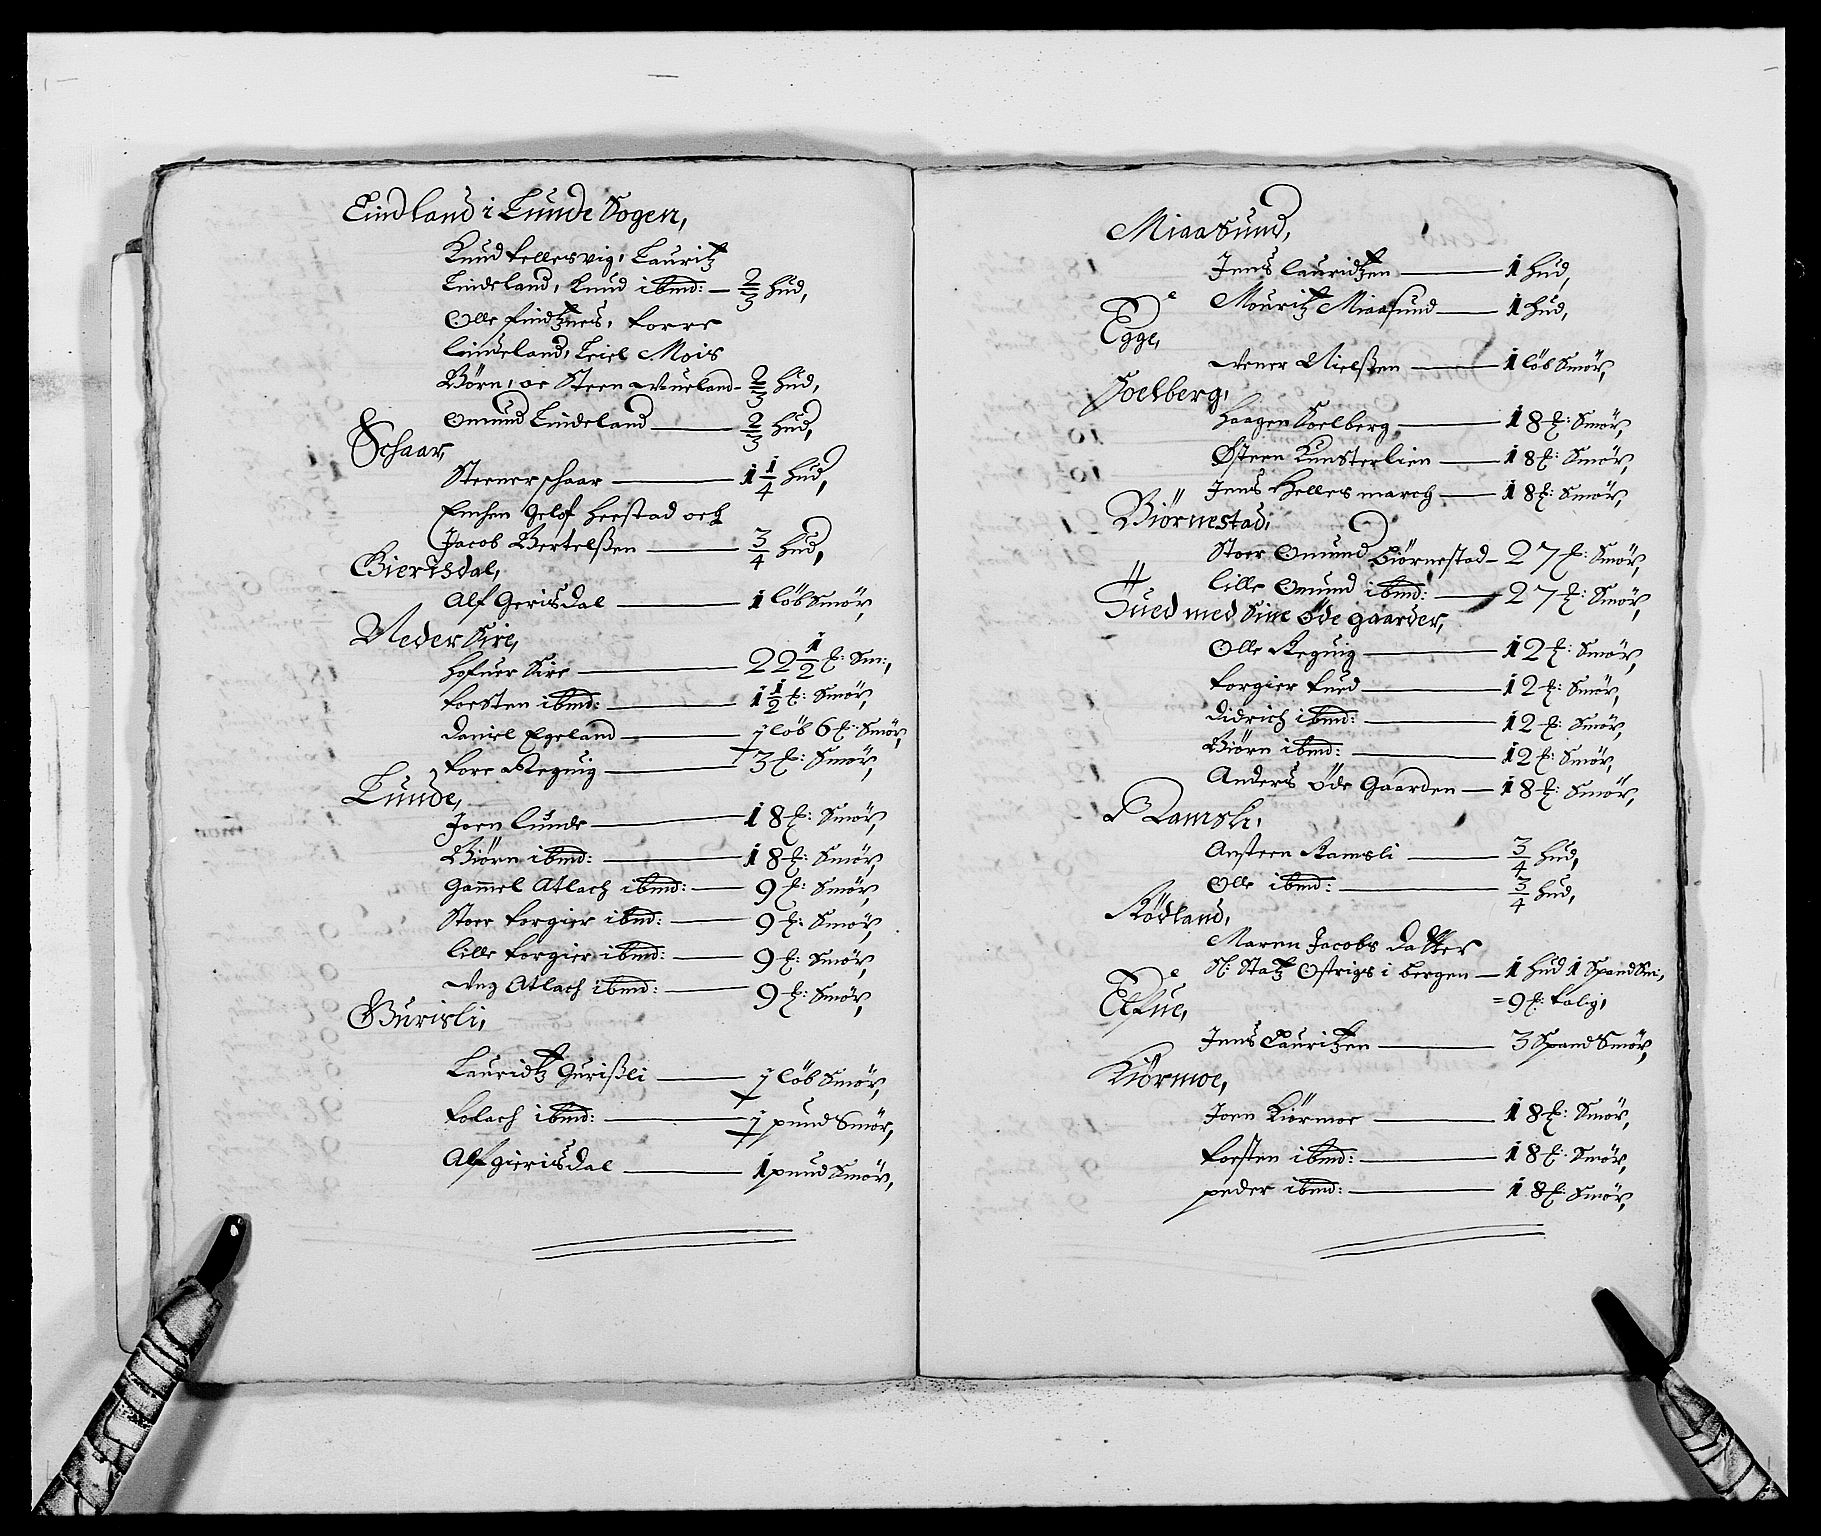 Lindland i Lunde Sogen,
Knud Fellesvig, Lauritz
Lindeland, Knud ibmd: — 2/3 hud,
Olle findtznes, Torre
Lindeland, Teiel Mois
Börn, oc Steen Vueland - 2/3 hud,
Omund Lindeland — 2/3 hud,
Schaar,
Steener schaar — 1 1/4 hud,
Enchen Gelof heestad och
Jacob Bertelßen — 3/4 hud,
Gierisdal,
Alf Gerisdal — 1 löb Smör,
Neder Sire,
hofuer Sire — 22 1/2 ℔: Sm:,
Torsten ibmd: — 1 1/2 ℔: Smör,
Daniel Egeland — 1 löb 6 ℔: Smör,
Tore Reguig — 3 ℔: Smör,
Lunde,
Joen Lunde — 18 ℔: Smör,
Biörn ibmd: — 18 ℔: Smör,
Gammel Atlach ibmd: — 9 ℔: Smör,
Stoer Torgier ibmd: — 9 ℔: Smör,
lille Torgier ibmd: — 9 ℔: Smör,
Ung Atlach ibmd: — 9 ℔: Smör,
Gurisli,
Lauridtz Gurißli — 1 löb Smör,
Tolach ibmd: — 1 pund Smör,
Alf gierisdal — 1 pund Smör,
Miaasund,
Jens lauridtzen — 1 hud,
Mouritz Miaasund — 1 hud,
Egge,
Vener Nielßen — 1 löb Smör,
Soelberg,
Haagen Soelberg — 18 ℔: Smör,
Østeen Kunsterlien — 18 ℔: Smör,
Jens Hellesmarch — 18 ℔: Smör,
Biörnestad,
Stoer Omund Biörnestad - 27 ℔: Smör,
lille Omund ibmd: — 27 ℔: Smör,
Tued med Sine öde gaarder,
Olle Reguig — 12 ℔: Smör,
Torgier Tued — 12 ℔: Smör,
Didrich ibmd: — 12 ℔: Smör,
Biörn ibmd: — 12 ℔: Smör,
Anders öde Gaarden — 18 ℔: Smör,
Ramsli,
Ansteen Ramsli — 3/4 hud,
Olle ibmd: — 3/4 hud,
Rödland,
Maren Jacobs Datter
Sl: Statz Ostrigs i bergen — 1 hud 1 Spand Sm:,
= 9 ℔: Talig,
Elfue,
Jens Lauritzen — 3 Spand Smör,
Kiörmoe,
Joen Kiörmoe — 18 ℔: Smör,
Torsten ibmd: — 18 ℔: Smör,
peder ibmd: — 18 ℔: Smör,